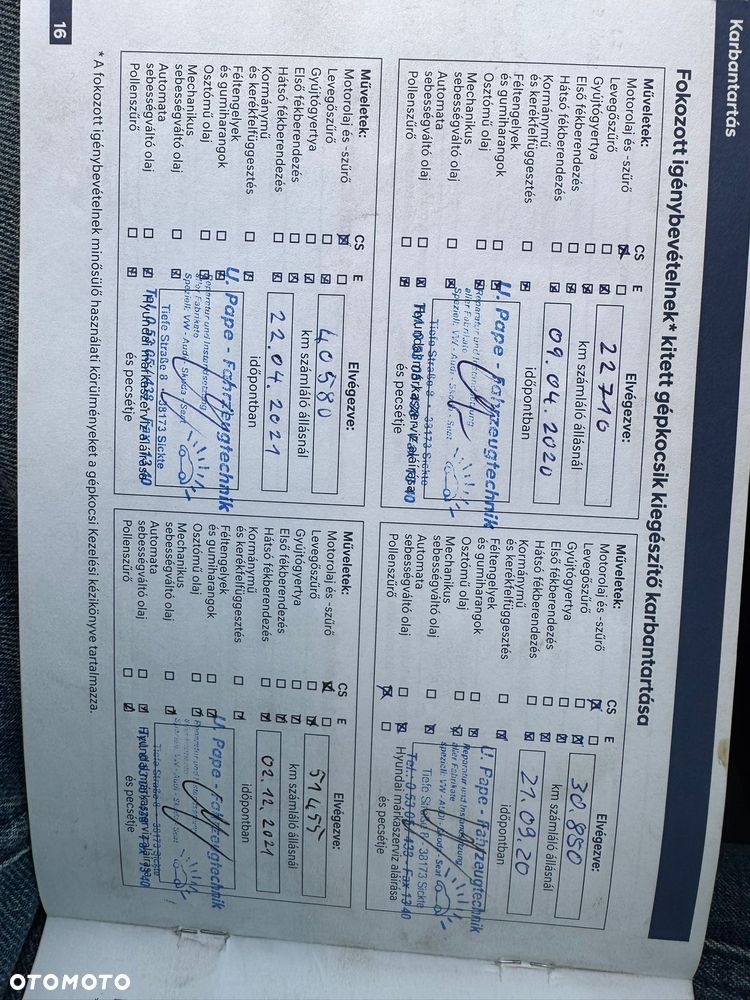 Karbantartás
Fokozott igénybevételnek* kitett gépkocsik kiegészítő karbantartása
Műveletek:
CS
E
Motorolaj és -szűrő
Levegőszűrő
Gyújtógyertya
Első fékberendezés
Hátsó fékberendezés
Kormánymű
és kerékfelfüggesztés
Féltengelyek
és gumiharangok
Osztómű olaj
Mechanikus
sebességváltó olaj
Automata
sebességváltó olaj
Pollenszűrő
Elvégezve:
22716
km számláló állásnál
09.04.2020
időpontban
U. Pape - Fahrzeugtechnik
Reparatur und Instandsetzung
aller Fabrikate
Speziell: VW - Audi - Skoda - Seat
Tiefe Straße 8 · 38173 Sickte
Hyundai márkaszerviz aláírása
és pecsétje
Műveletek:
CS
E
Motorolaj és -szűrő
Levegőszűrő
Gyújtógyertya
Első fékberendezés
Hátsó fékberendezés
Kormánymű
és kerékfelfüggesztés
Féltengelyek
és gumiharangok
Osztómű olaj
Mechanikus
sebességváltó olaj
Automata
sebességváltó olaj
Pollenszűrő
Elvégezve:
30.850
km számláló állásnál
21.09.20
időpontban
U. Pape - Fahrzeugtechnik
Reparatur und Instandsetzung
aller Fabrikate
Speziell: VW - Audi - Skoda - Seat
Tiefe Straße 8 · 38173 Sickte
Hyundai márkaszerviz aláírása
és pecsétje
Műveletek:
CS
E
Motorolaj és -szűrő
Levegőszűrő
Gyújtógyertya
Első fékberendezés
Hátsó fékberendezés
Kormánymű
és kerékfelfüggesztés
Féltengelyek
és gumiharangok
Osztómű olaj
Mechanikus
sebességváltó olaj
Automata
sebességváltó olaj
Pollenszűrő
Elvégezve:
40580
km számláló állásnál
22.04.2021
időpontban
U. Pape - Fahrzeugtechnik
Reparatur und Instandsetzung
aller Fabrikate
Speziell: VW - Audi - Skoda - Seat
Tiefe Straße 8 · 38173 Sickte
Hyundai márkaszerviz aláírása
és pecsétje
Műveletek:
CS
E
Motorolaj és -szűrő
Levegőszűrő
Gyújtógyertya
Első fékberendezés
Hátsó fékberendezés
Kormánymű
és kerékfelfüggesztés
Féltengelyek
és gumiharangok
Osztómű olaj
Mechanikus
sebességváltó olaj
Automata
sebességváltó olaj
Pollenszűrő
Elvégezve:
51455
km számláló állásnál
02.12.2021
időpontban
U. Pape - Fahrzeugtechnik
Reparatur und Instandsetzung
Speziell: VW - Audi - Skoda - Seat
Tiefe Straße 8 · 38173 Sickte
Hyundai márkaszerviz aláírása
és pecsétje
* A fokozott igénybevételnek minősülő használati körülményeket a gépkocsi Kezelési kézikönyve tartalmazza.
16
OTOMOTO